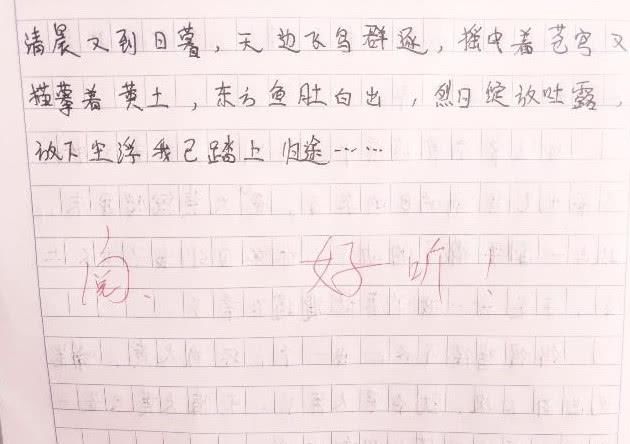 清晨又到日暮，天边飞鸟群逐，摇曳着苍穹又
描摹着黄土，东方鱼肚白出，烈日绽放吐露，
放下尘浮我已踏上归途……
阅、 好听！